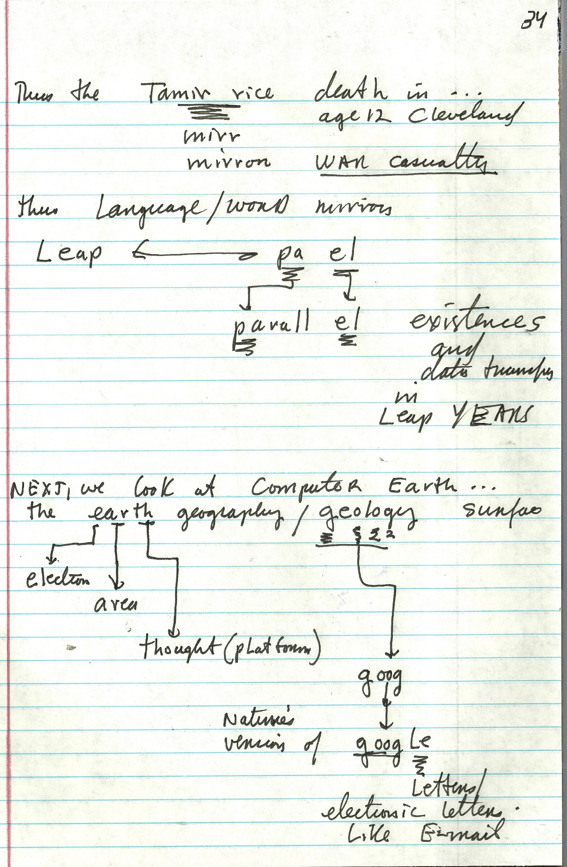 34
Thus the Tamir rice death in ...
age 12 Cleveland
mirr
mirror WAR casualty
thus Language/word mirrors
Leap pa el
parall el existences
and
data transfer
in
Leap YEARS
NEXT, we look at Computer Earth ...
the earth geography / geology surface
electron
area
thought (platform)
goog
Nature's
version of googLe
Letters/
electronic letters.
Like E-mail